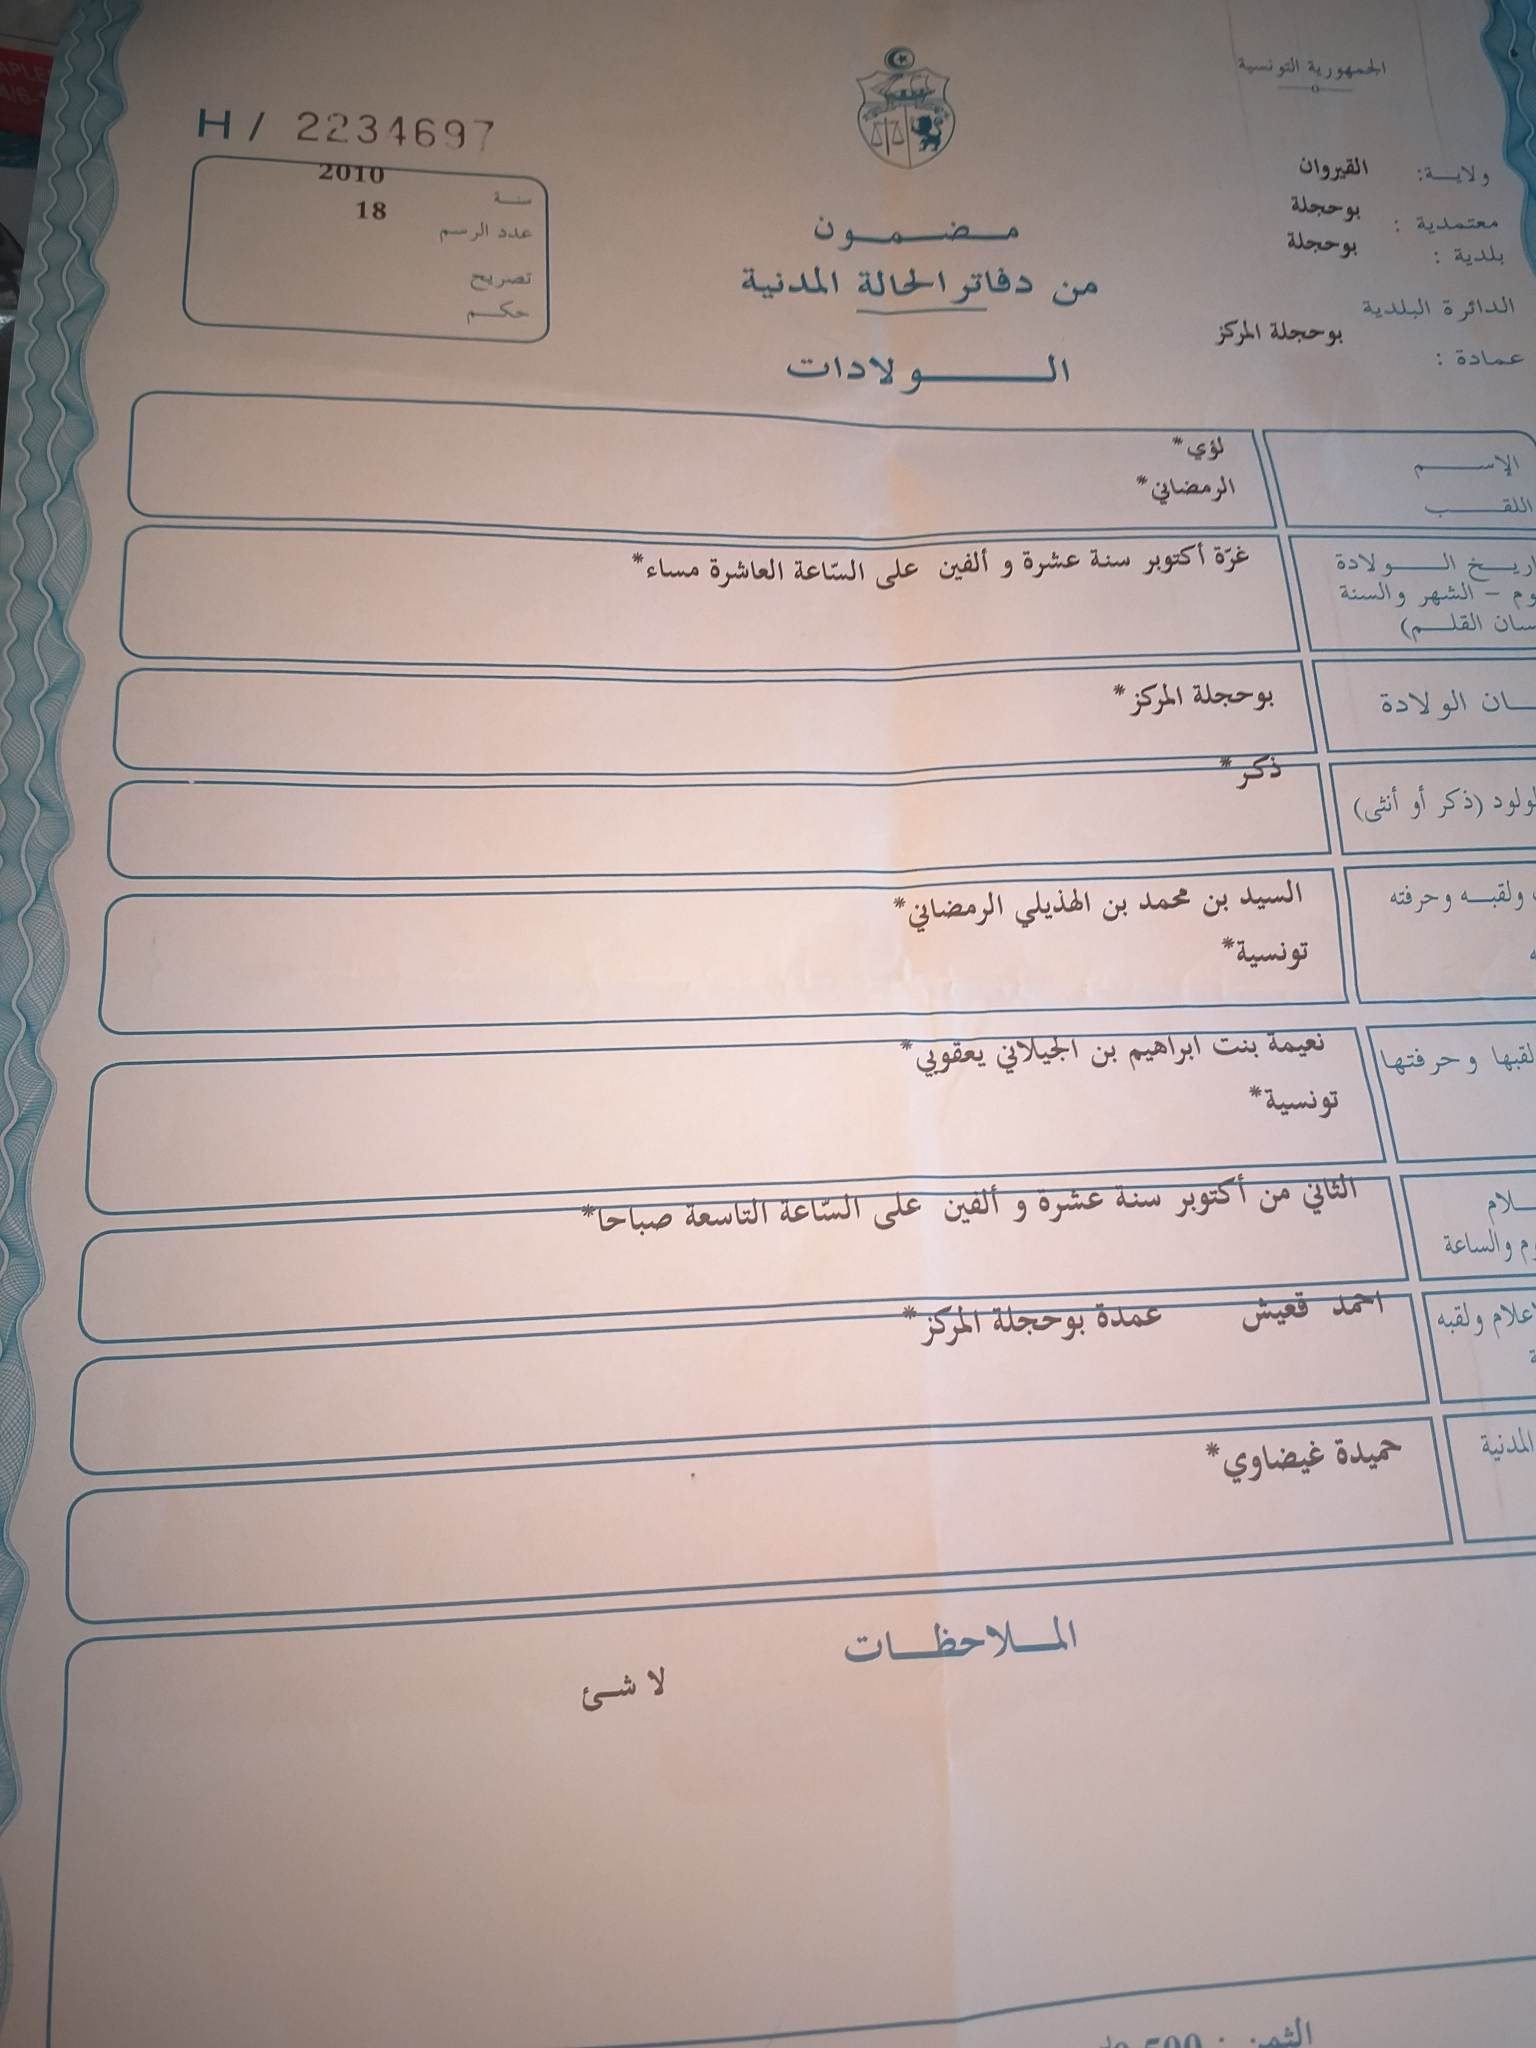 الجمهورية التونسية
H / 2234697
ولاية: القيروان
معتمدية : بوحجلة
بلدية : بوحجلة
الدائرة البلدية
عمادة : بوحجلة المركز
سنة 2010
عدد الرسم 18
تصريح
حكم
مضمون
من دفاتر الحالة المدنية
الولادات
الإسم لؤي*
اللقب الرمضاني*
اريخ الولادة غرّة أكتوبر سنة عشرة و ألفين على السّاعة العاشرة مساء*
وم - الشهر والسنة
سان القلم)
ان الولادة بوحجلة المركز*
لولود (ذكر أو أنثى) ذكر*
ولقبه وحرفته السيد بن محمد بن الهذيلي الرمضاني*
تونسية*
لقبها وحرفتها نعيمة بنت ابراهيم بن الجيلاني يعقوبي*
تونسية*
لام الثاني من أكتوبر سنة عشرة و ألفين على السّاعة التاسعة صباحا*
وم والساعة
إعلام ولقبه احمد قعيش عمدة بوحجلة المركز*
المدنية حميدة غيضاوي*
الملاحظات
لا شئ
الثمن :